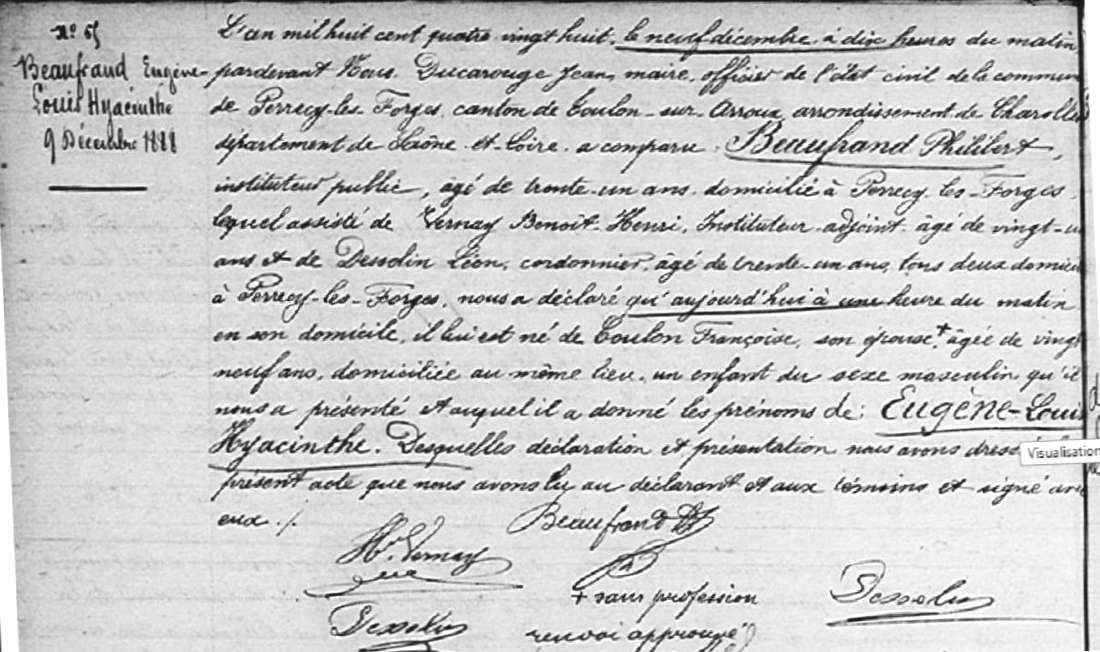 N° 65
Beaufrand Eugène-
Louis Hyacinthe
9 Décembre 1888
L'an mil huit cent quatre vingt huit, le neuf décembre à dix heures du matin
pardevant Nous, Ducarouge Jean, maire, officier de l'état civil de la commun
de Perrecy-les-Forges, canton de Toulon-sur-Arroux, arrondissement de Charolles
département de Saône-et-Loire, a comparu: Beaufrand Philibert,
instituteur public, âgé de trente-un ans, domicilié à Perrecy-les-Forges
lequel assisté de Vernay Benoit-Henri, Instituteur-adjoint, âgé de vingt-u
ans et de Dessolin Léon, cordonnier, âgé de trente-un ans, tous deux domici
à Perrecy-les-Forges, nous a déclaré qu'aujourd'hui à une heure du matin
en son domicile, il lui est né de Toulon Françoise, son épouse,+ âgée de vingt
neuf ans, domiciliée au même lieu, un enfant du sexe masculin qu'il
nous a présenté et auquel il a donné les prénoms de: Eugène-Louis
Hyacinthe. Desquelles déclaration et présentation nous avons dressé
présent acte que nous avons lu au déclarant et aux témoins et signé avec
eux./.
Beaufrand Ph
Hri Vernay
+ sans profession
Dessolin
Dessolin
renvoi approuvé
Visualisation